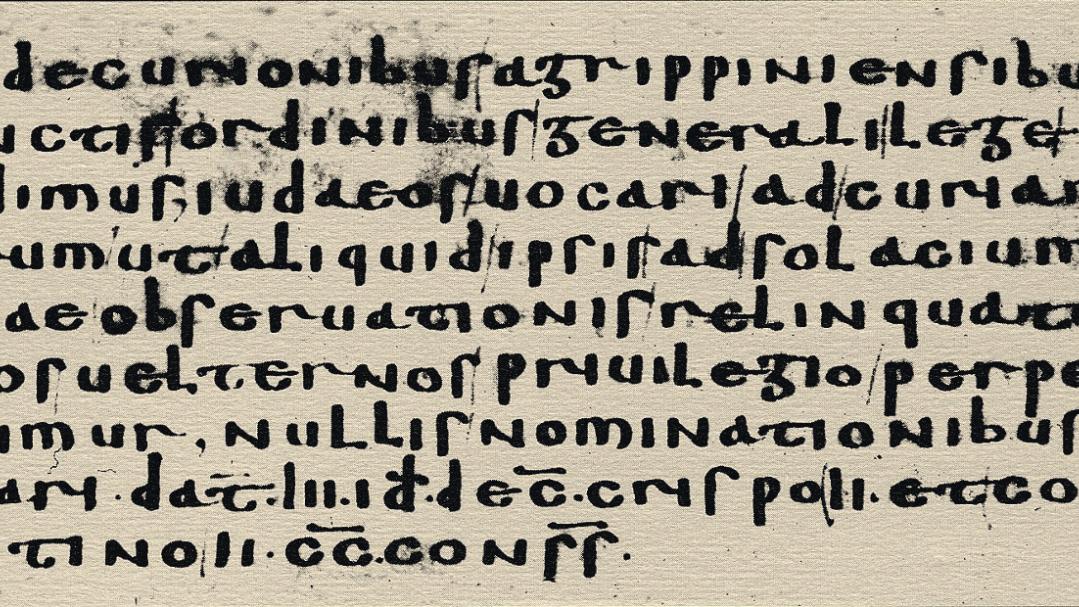 decurionibus agrippiniensibu
uctis ordinibus generali lege
dimus, iudaeos uocari ad curiam
um ut aliquid ipsis ad solacium
ae obseruationis relinquatu
os uel ternos priuilegio perpe
imur, nullis nominationibus
ari. dat̄. iii. id̄. dec̄. crispo ii. et co
tino ii. c̄c̄. cons̄s̄.